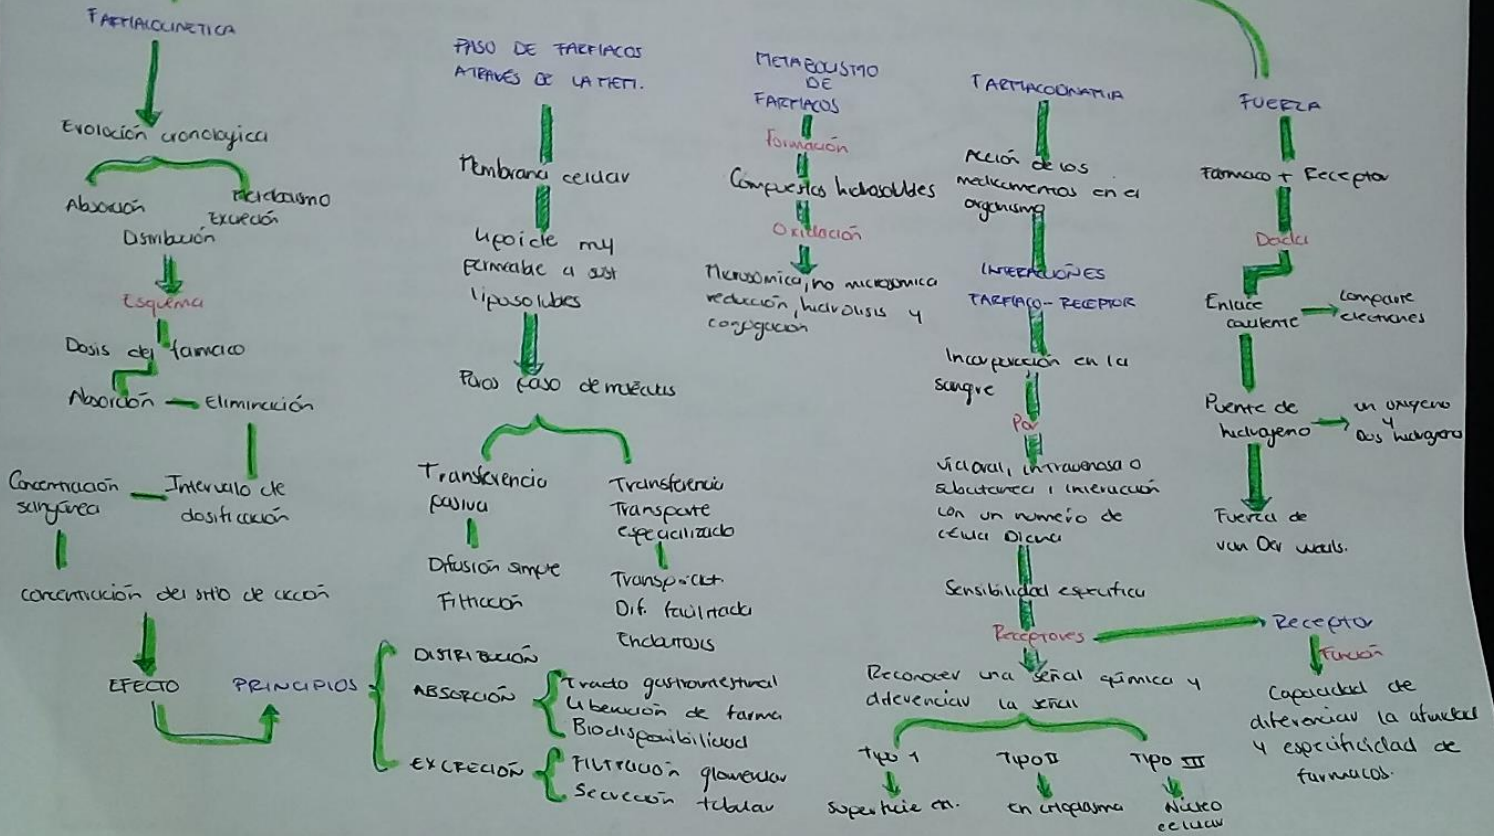 FARMACOCINETICA
Evolución cronologica
Absorción
Metabolismo
Excreción
Distribución
Esquema
Dosis del farmaco
Absorción
Eliminación
Concentración
sanguinea
Intervalo de
dosificación
concentración del sitio de acción
EFECTO
PRINCIPIOS
DISTRIBUCIÓN
ABSORCIÓN
Tracto gastrointestinal
Liberación de farma
Biodisponibilidad
EXCRECIÓN
Filtración glomerular
Secreción tubular
PASO DE FARMACOS
ATRAVÉS DE LA MEM.
Membrana celular
Lipoide muy
permeable a sust
liposolubes
Poros paso de moléculas
Transferencia
pasiva
Difusión simple
Filtración
Transferencia
Transporte
especializado
Transp. act.
Dif. facilitada
Endocitosis
METABOLISMO
DE
FARMACOS
Formación
Compuestos hidrosolubles
Oxidación
Microsómica, no microsómica
reducción, hidrolisis y
conjugación
FARMACODINAMIA
Acción de los
medicamentos en el
organismo
INTERACCIÓNES
FARMACO-RECEPTOR
Incorporación en la
sangre
Por
Via oral, intravenosa o
subcutanea, interacción
con un numero de
célula Diana
Sensibilidad especifica
Receptores
Reconocer una señal química y
diferenciar la señal
Tipo 1
Superficie cn.
TIPO II
En citoplasma
TIPO III
Núcleo
celular
FUERZA
Farmaco + Receptor
Dada
Enlace
covalente
Comparte
electrones
Puente de
hidrogeno
un oxigeno
y
Dos hidrogeno
Fuerza de
van Der walls.
Receptor
Función
Capacidad de
diferenciar la afinidad
y especificidad de
farmacos.